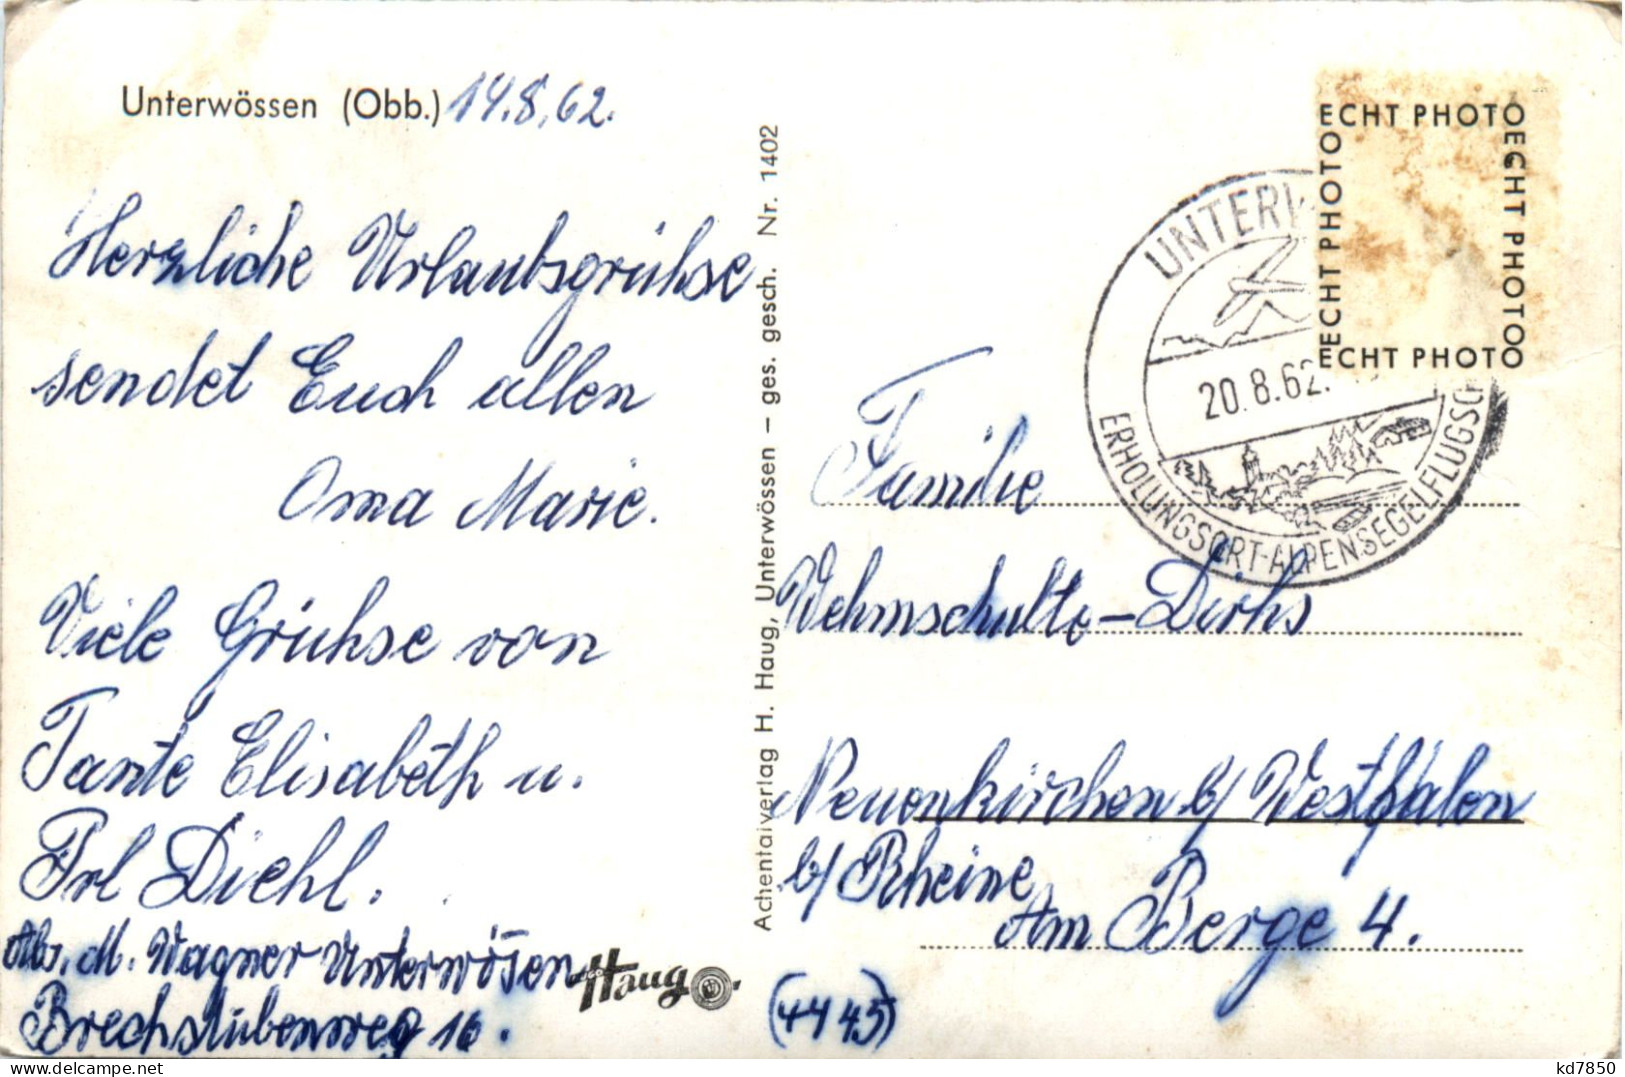 Unterwössen (Obb.) 14.8.62.
Herzliche Urlaubsgrühse
sendet Euch allen
Oma Marie.
Viele Grühse von
Tante Elisabeth u.
Frl Diehl.
Abs. M. Wagner Unterwösen
Brechstubenweg 16.
Haug
Achentalverlag H. Haug, Unterwössen – ges. gesch. Nr. 1402
ECHT PHOTO
ECHT PHOTO
ECHT PHOTO
ECHT PHOTO
20.8.62.
ERHOLUNGSORT-ALPENSEGELFLUGSCH
Familie
Wehmschulte-Dirks
Neuenkirchen b/ Westfalen
b/ Rheine
Am Berge 4.
(4445)
kd7850